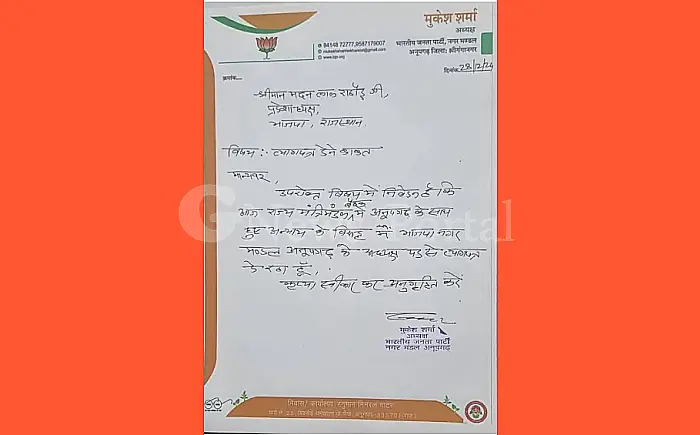 मुकेश शर्मा
अध्यक्ष
भारतीय जनता पार्टी, नगर मण्डल
अनूपगढ़ जिला: श्रीगंगानगर
94148 72777, 9587179007
www.bjp.org
क्रमांक
दिनांक 28/12/24
श्रीमान मदन लाल राठौड़ जी,
प्रदेशाध्यक्ष,
भाजपा, राजस्थान
विषय :- त्यागपत्र देने बाबत
मान्यवर,
उपरोक्त विषय में निवेदन है कि
आज राज्य मंत्रिमंडल बैठक में अनूपगढ़ के साथ
हुए अन्याय के विरुद्ध मैं भाजपा नगर
मण्डल अनूपगढ़ के अध्यक्ष पद से त्यागपत्र
दे रहा हूँ,
कृपया स्वीकार कर अनुगृहित करें
मुकेश शर्मा
अध्यक्ष
भारतीय जनता पार्टी
नगर मंडल अनूपगढ़
G News Portal
निवास/ कार्यालय: हनुमान मिनरल वाटर